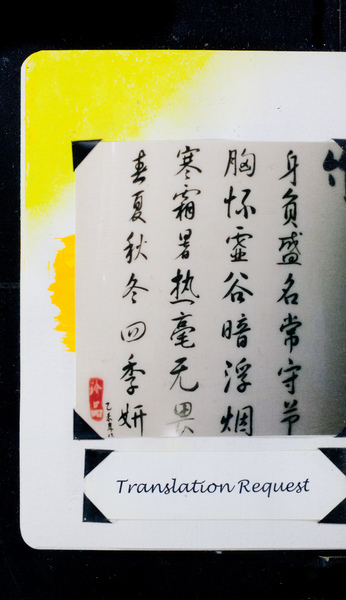 身负盛名常守节
胸怀虚谷暗浮烟
寒霜暑热毫无畏
春夏秋冬四季妍
Translation Request